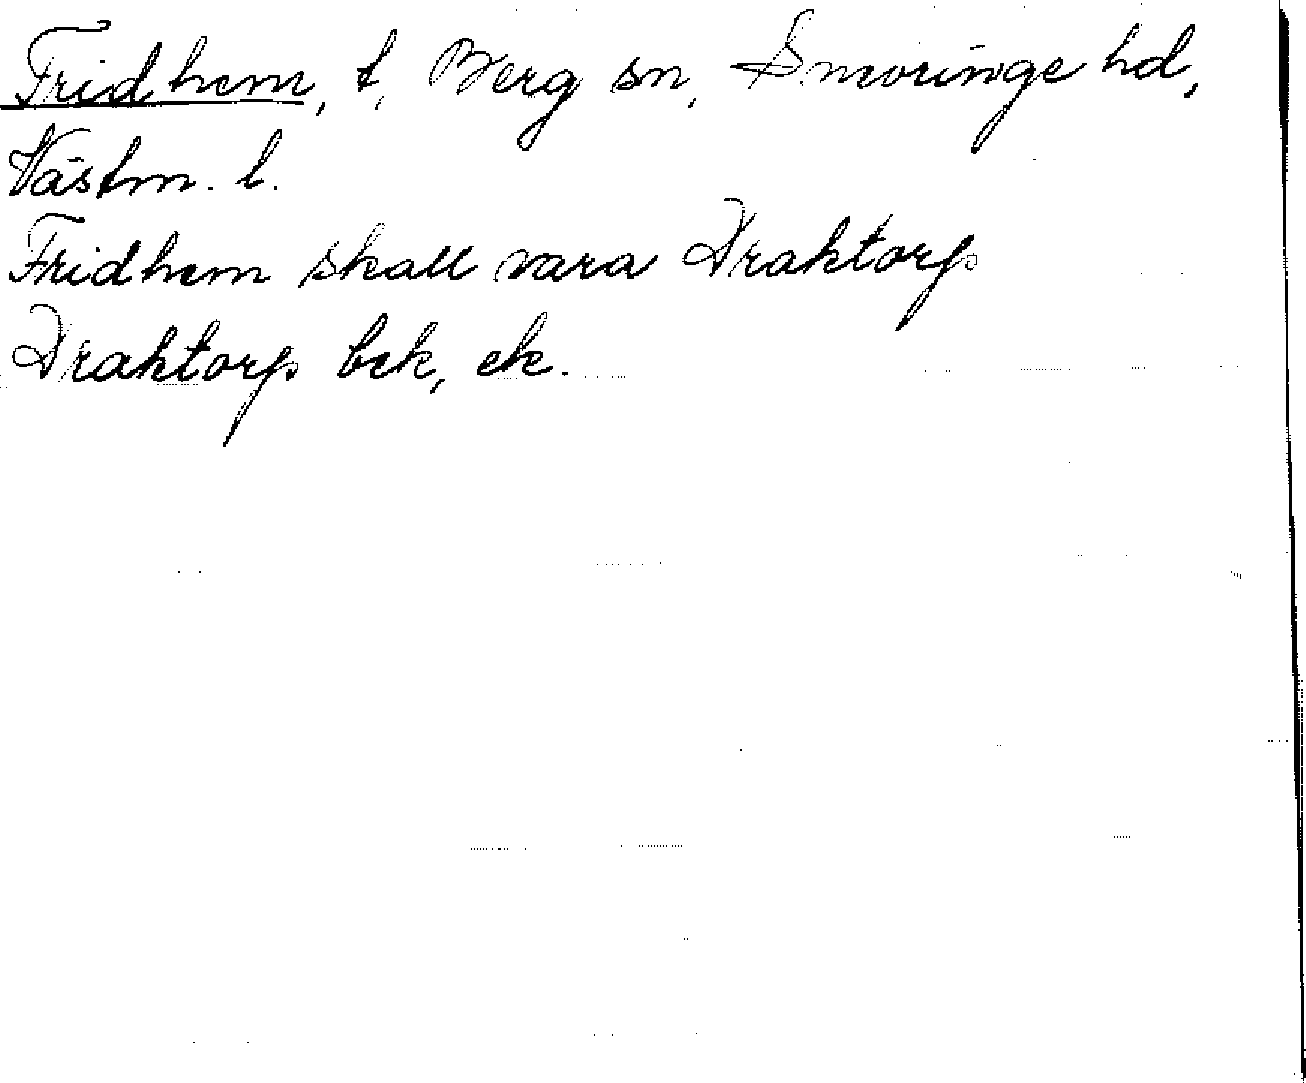 Fridhem, t, Berg sn, Snevringe hd,
Västm. l.
Fridhem skall vara Draktorp
Draktorp bek, ek.